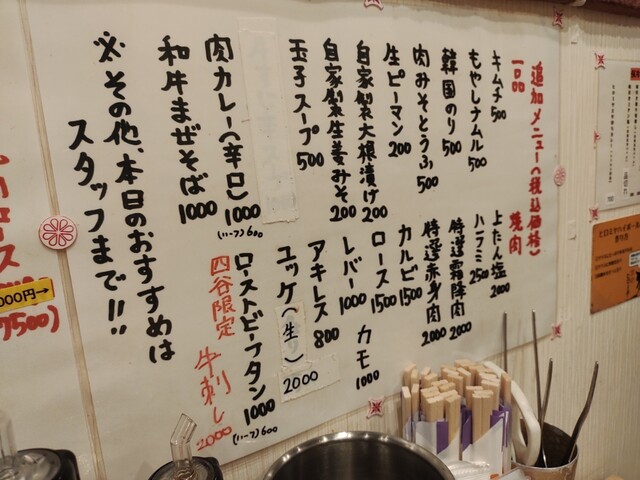 追加メニュー(税込価格)
一品
キムチ 500
もやしナムル 500
韓国のり 500
肉みそとうふ 500
生ピーマン 200
自家製大根漬け 200
自家製生姜みそ 200
玉子スープ 500
肉カレー(辛口) 1000
(ハーフ) 600
和牛まぜそば 1000
※その他、本日のおすすめは
スタッフまで!!
焼肉
上たん塩 2000
ハラミ 2500
特選霜降肉 2000
特選赤身肉 2000
カルビ 1500
ロース 1500
カモ 1000
レバー 1000
アキレス 800
ユッケ(生) 2000
ローストビーフタン 1000
(ハーフ) 600
四谷限定 牛刺し 2000
000円→
7500)